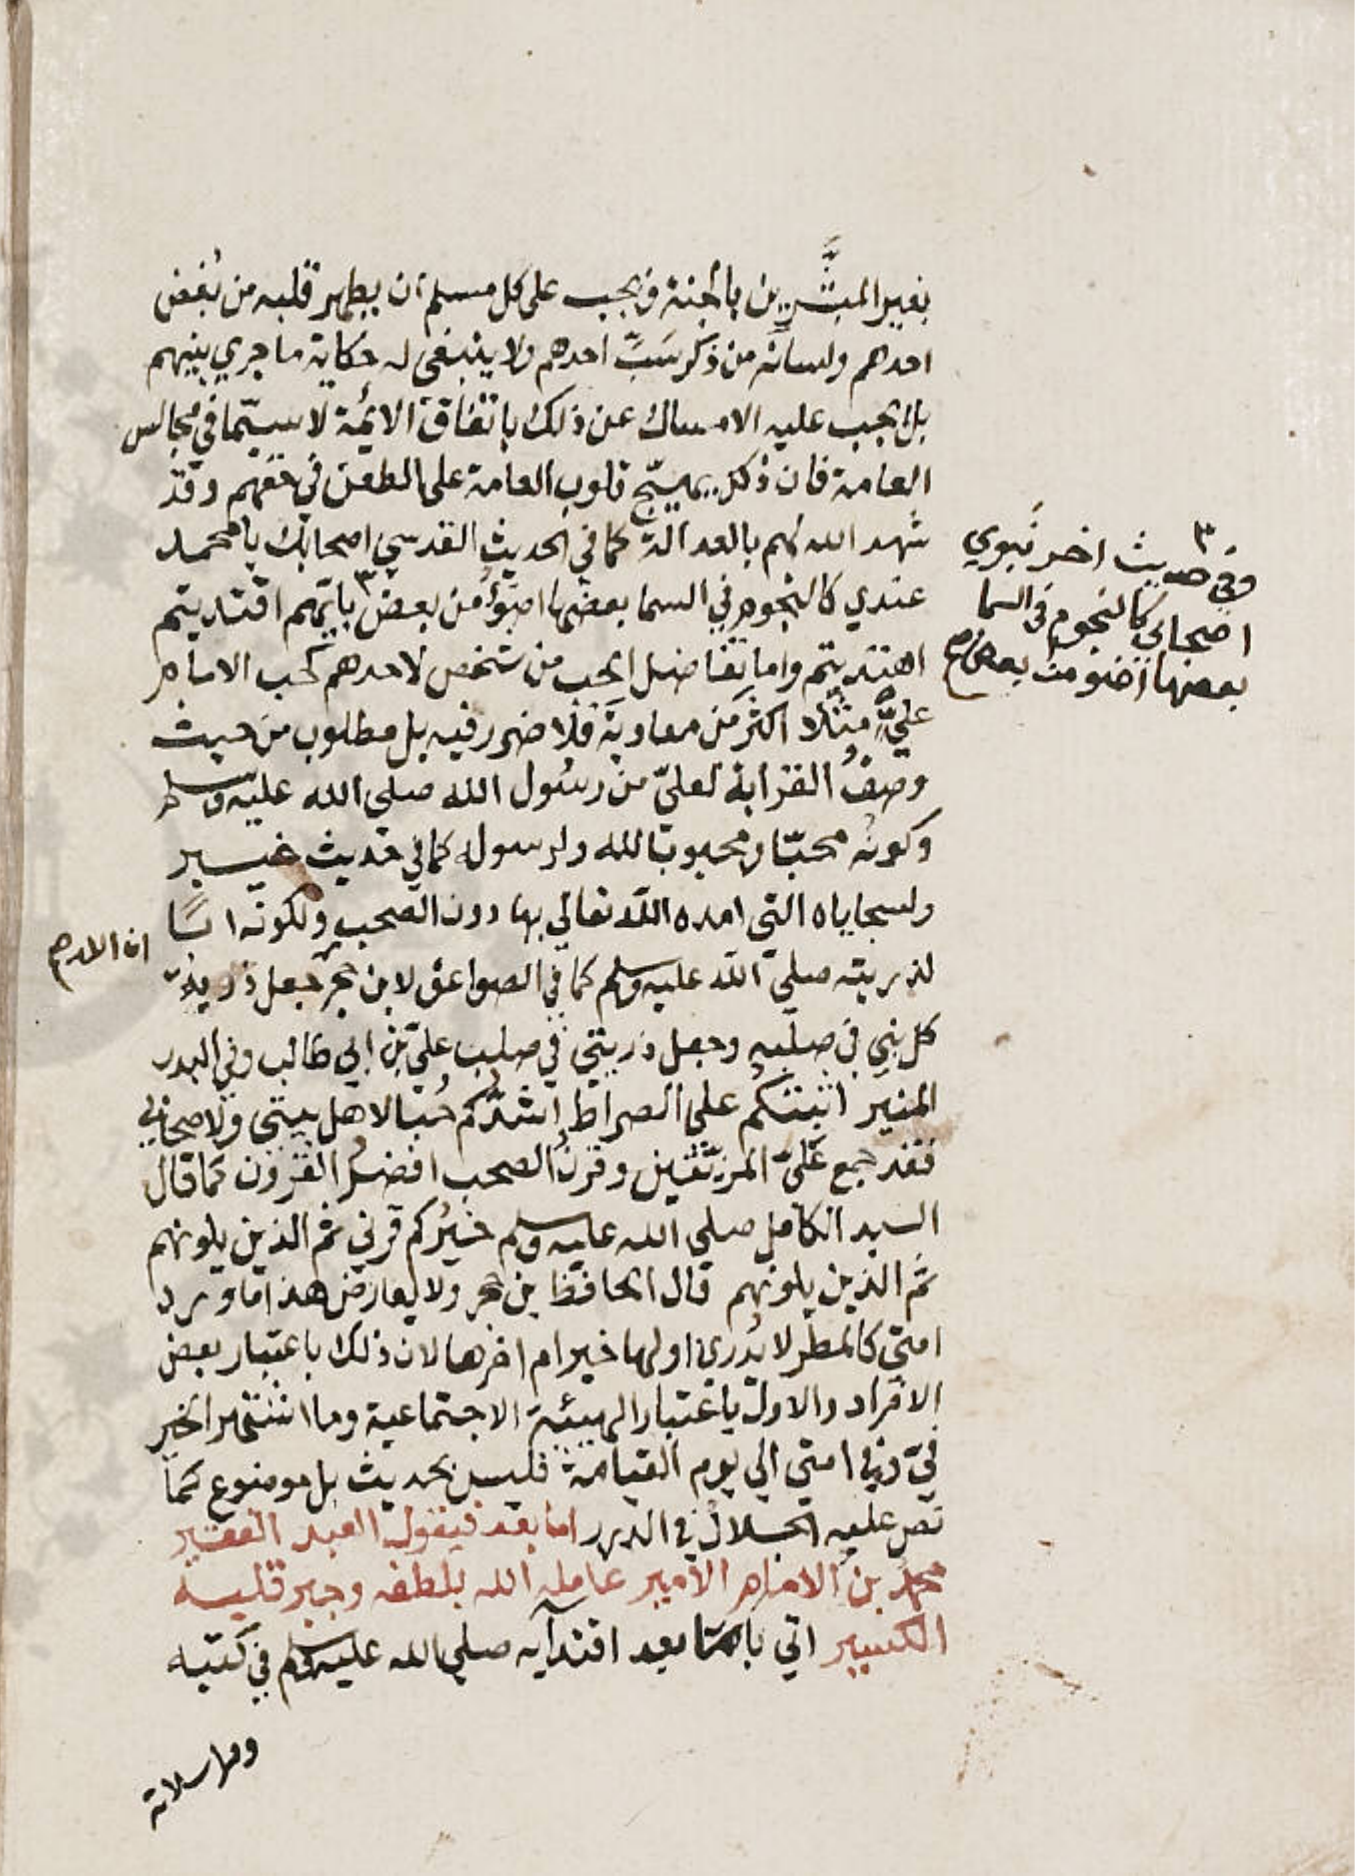 بغير المبشَّرين بالجنة فيجب على كل مسلم ان يطهر قلبه من بُغض
احدهم ولسانه من ذكر سَبّ احدهم ولا ينبغي له حكاية ما جري بينهم
بل يجب عليه الامساك عن ذلك باتفاق الايمة لا سيّما في مجالس
العامة فان ذلك يهيّج قلوب العامة على الطعن في حقهم وقد
شهد الله لهم بالعدالة كما في الحديث القدسي اصحابك يا محمد
عندي كالنجوم في السما بعضها اضوؤ من بعض ٣ بايّهم اقتديتم
اهتديتم واما تفاضل الحب من شخص لاحدهم كحب الامام
عليٍّ مثلا اكثر من معاوية فلا ضرر فيه بل مطلوب من حيث
وصفُ القرابة لعليّ من رسُول الله صلى الله عليه وسلم
وكونه محبّا ومحبوبا لله ولرسوله كما في حديث خيبر
ولسجاياه التي امده الله تعالي بها دون الصحب ولكونه اسًّا
لذريته صلي الله عليه وسلم كما في الصواعق لابن حجر جعل ذرية
كل نبي في صلبه وجعل ذريتي في صلب عليّ بن ابي طالب وفي البدر
المنير اثبتكم على الصراط اشدُّكم حُبا لاهل بيتي ولاصحابي
فقد جمع عليّ المزيّتين وقرنُ الصحب افضلُ القرون كما قال
السيد الكامل صلى الله عليه وسلم خيرُكم قرني ثم الذين يلونهم
ثم الذين يلونهم قال الحافظ بن حجر ولا يعارض هذا ما ورد
امتي كالمطر لا يُدرى اولها خير ام اخرها لان ذلك باعتبار بعض
الافراد والاول باعتبار الهيئة الاجتماعية وما اشتهر الخير
فيّ وفي امتي الي يوم القيامة فليس بحديث بل موضوع كما
نص عليه الجلال في الدرر اما بعد فيقول العبد الفقير
محمد بن الامام الامير عامله الله بلطفه وجبر قلبه
الكسير اني بعد اقتدايه صلي الله عليه وسلم في كتبه
ومراسلاته
٣
وفي حديث اخر نبوي
اصحابي كالنجوم في السما
بعضها اضو من بعض صح
ان الله صح